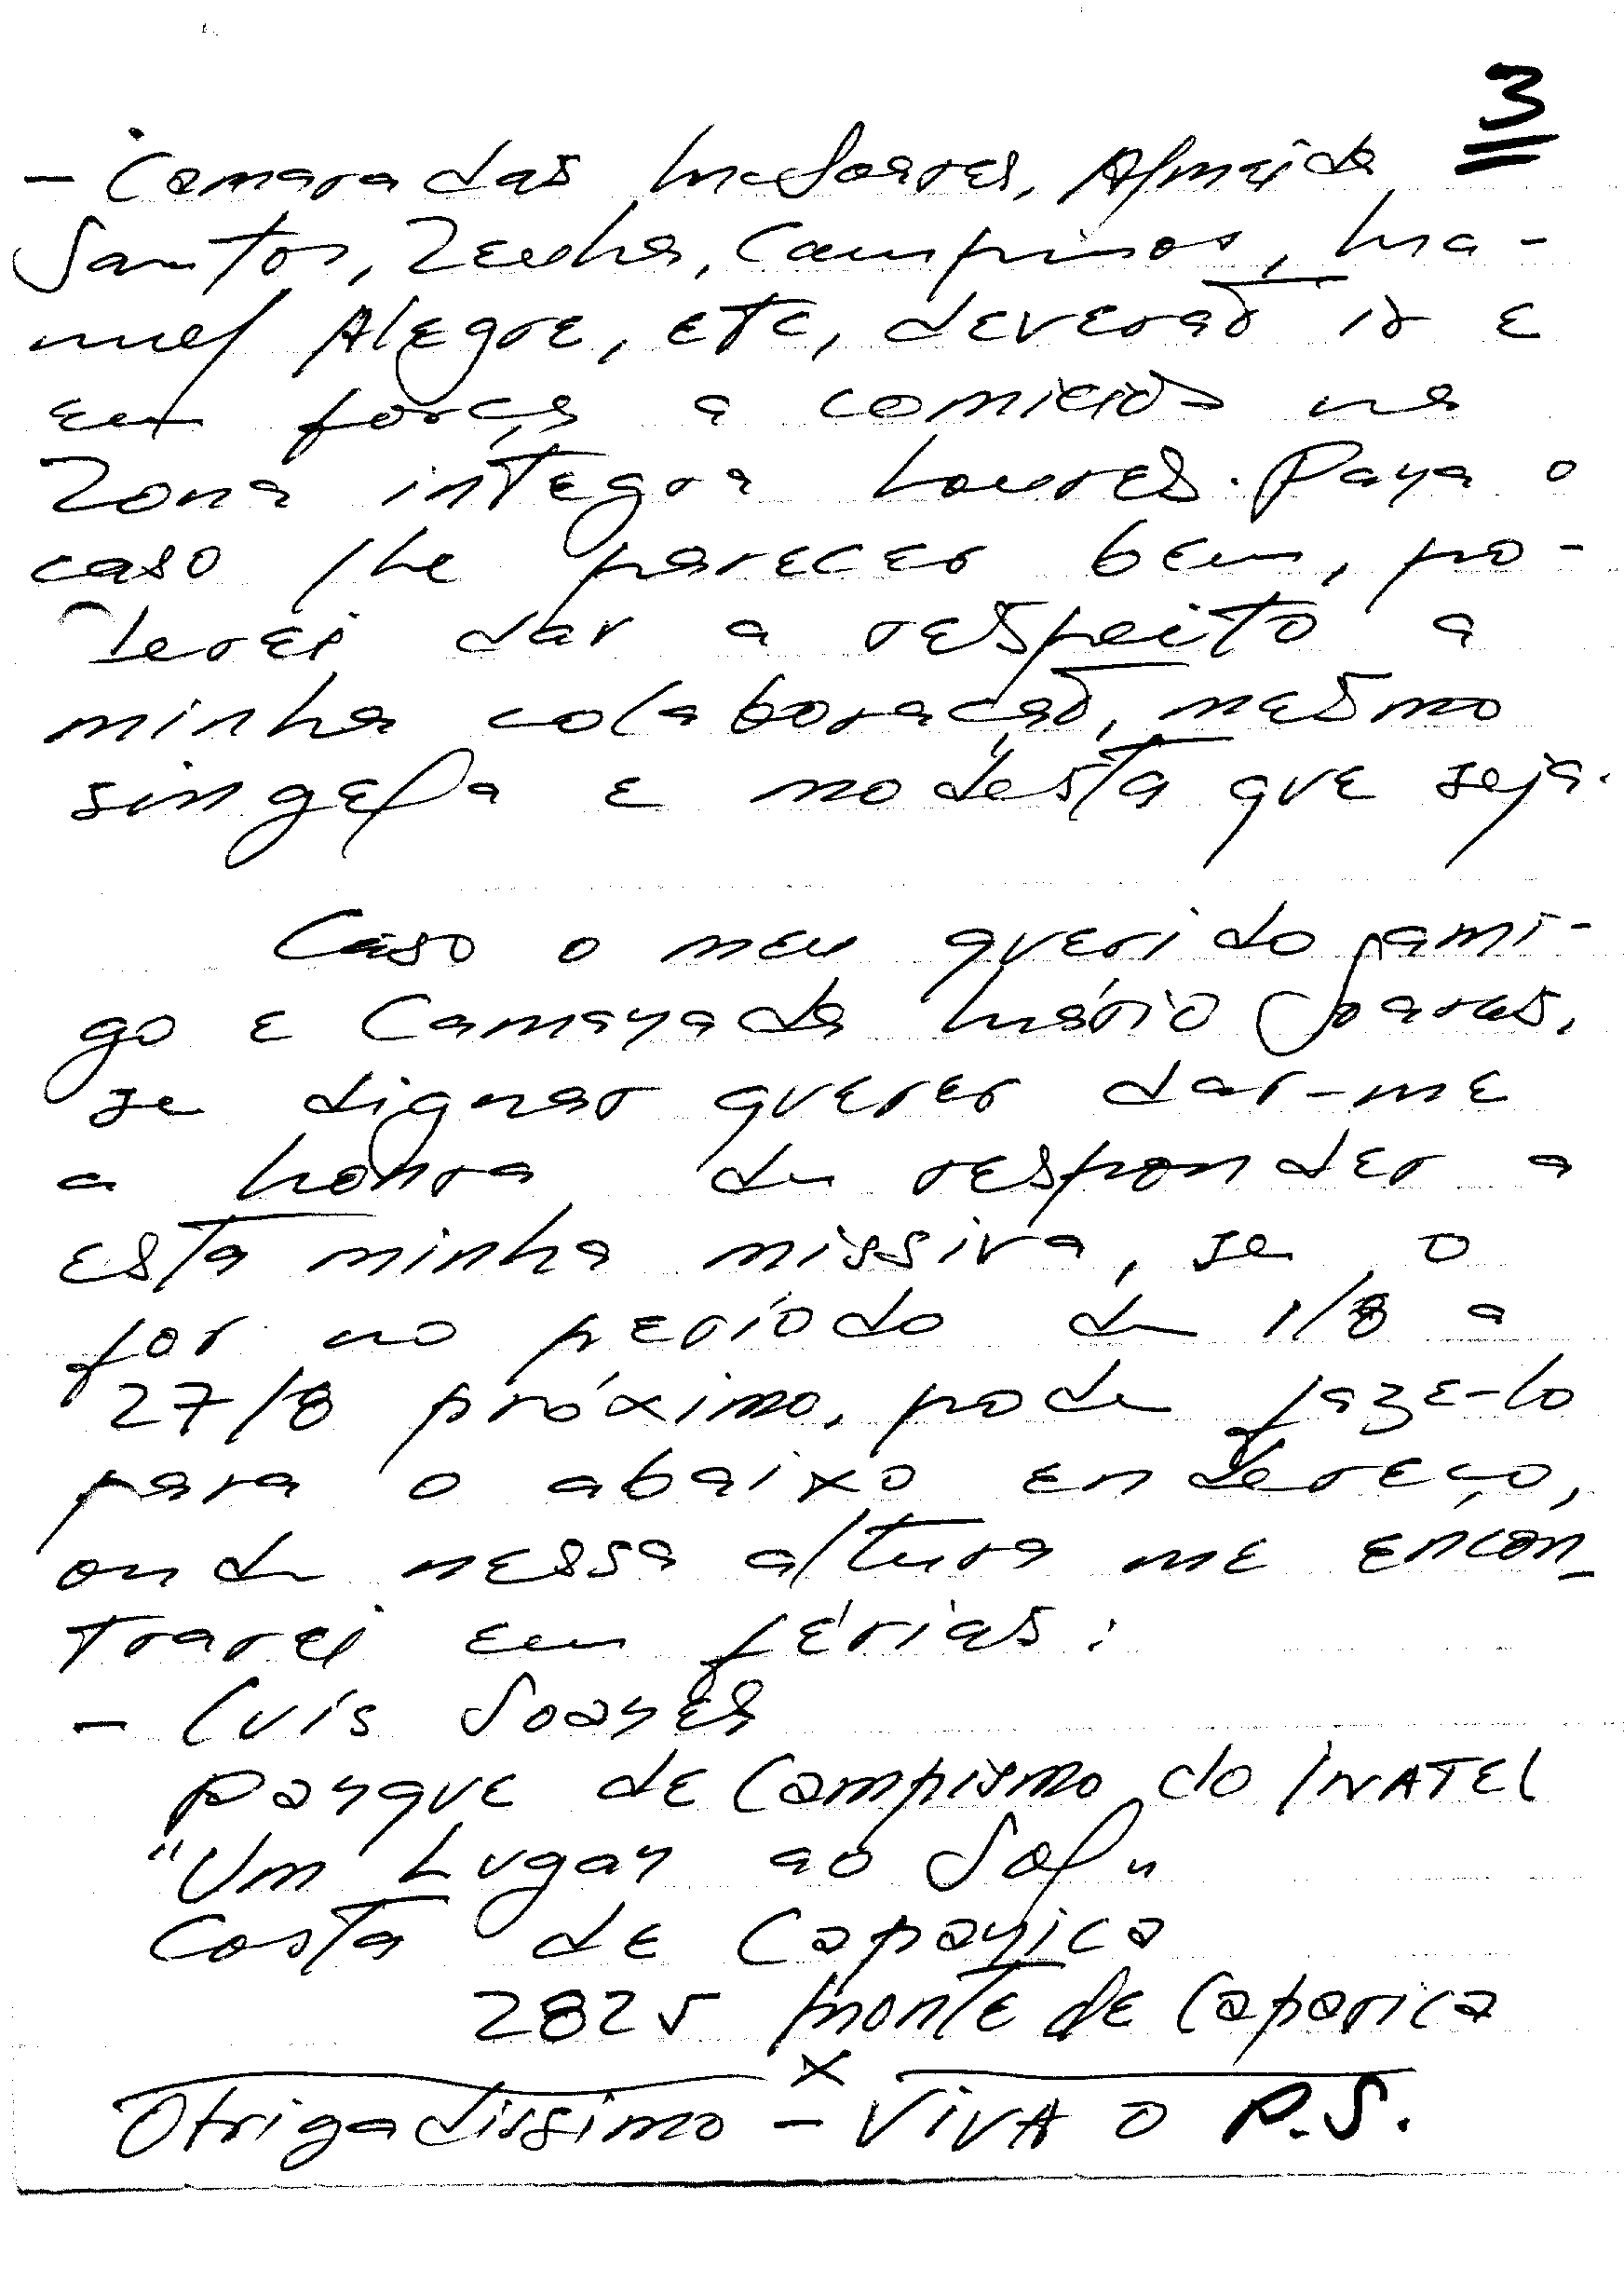 3
- Camaradas M. Soares, Almeida
Santos, Zenha, Campinos, Ma-
nuel Alegre, etc, deverão ir e
em força a comicios na
Zona íntegra Loures. Para o
caso lhe parecer bem, po-
derei dar a respeito a
minha colaboração, mesmo
singela e modesta que seja.
Caso o meu querido ami-
go e Camarada Mário Soares,
se dignar querer dar-me
a honra de responder a
esta minha missiva, se o
for no período de 1/8 a
27/8 próximo, pode faze-lo
para o abaixo endereço,
onde nessa altura me encon-
trarei em férias:
- Luís Soares
Parque de Campismo do INATEL
"Um Lugar ao Sol"
Costa de Caparica
2825 Monte de Caparica
x
Obrigadissimo - VIVA O P.S.